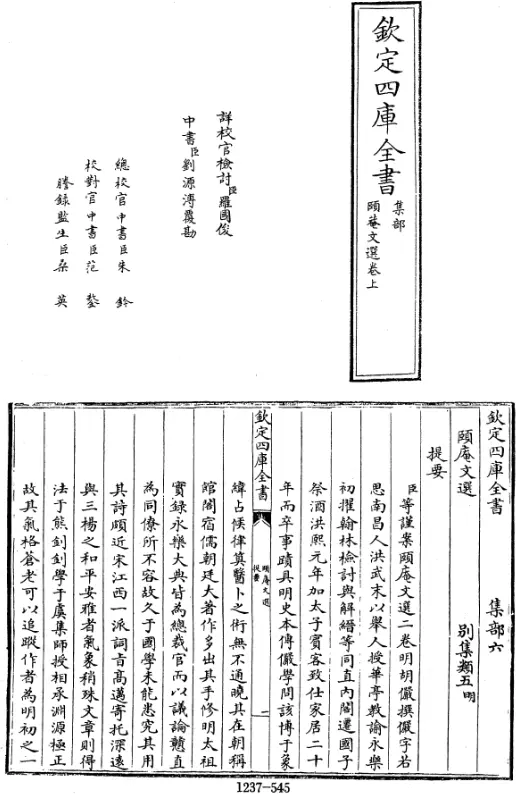 欽定四庫全書
集部
頤菴文選卷上
詳校官檢討臣羅國俊
中書臣劉源溥覆勘
總校官中書臣朱鈐
校對官中書臣范鏊
謄錄監生臣桑英
欽定四庫全書 集部六
頤庵文選 別集類五明
提要
臣等謹案頤庵文選二卷明胡儼撰儼字若
思南昌人洪武末以舉人授華亭教諭永樂
初擢翰林檢討與解縉等同直內閣遷國子
祭酒洪熙元年加太子賓客致仕家居二十
年而卒事蹟具明史本傳儼學問該博于象
欽定四庫全書 頤庵文選 提要 一
緯占候律算醫卜之術無不通曉其在朝稱
館閣宿儒朝廷大著作多出其手修明太祖
實錄永樂大典皆為總裁官而以議論戇直
為同僚所不容故久于國學未能悉究其用
其詩頗近宋江西一派詞旨高邁寄托深遠
與三楊之和平安雅者氣象稍殊文章則得
法于熊釗釗學于虞集師授相承淵源極正
故其氣格蒼老可以追蹤作者為明初之一
1237-545